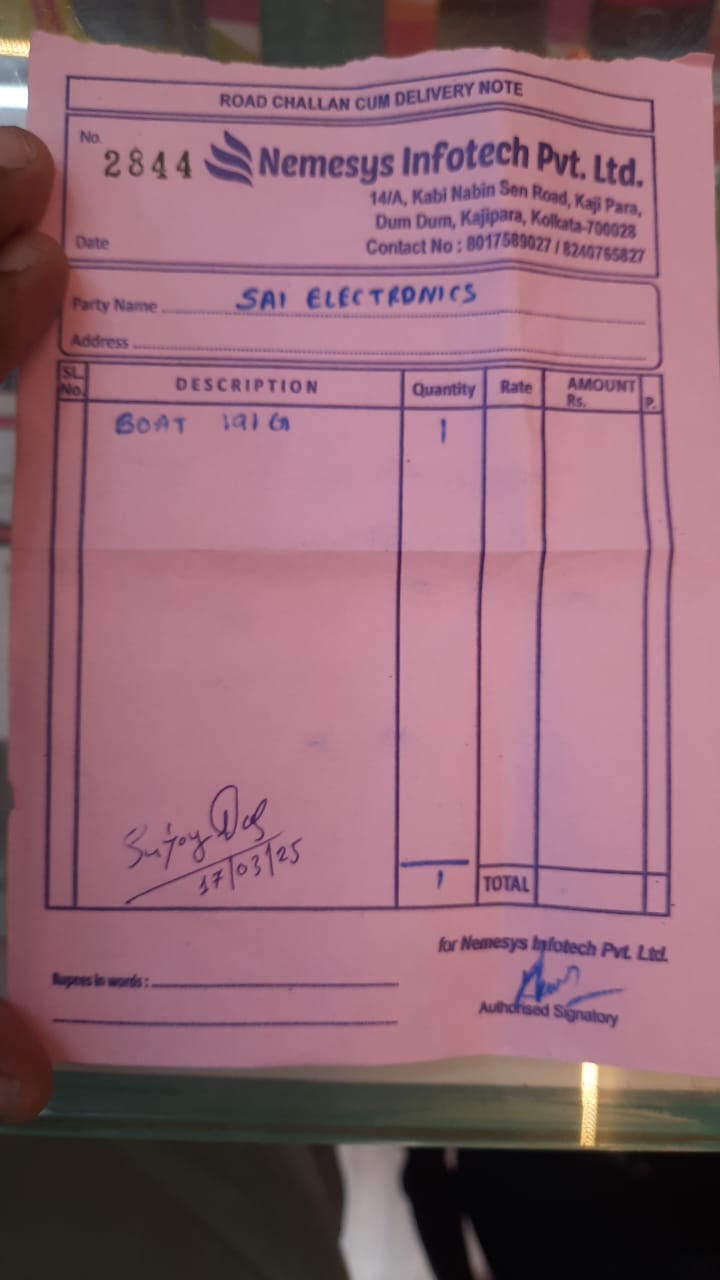 ROAD CHALLAN CUM DELIVERY NOTE
No. 2844
Nemesys Infotech Pvt. Ltd.
14/A, Kabi Nabin Sen Road, Kaji Para,
Dum Dum, Kajipara, Kolkata-700028
Date
Contact No : 8017589027 / 8240765827
Party Name SAI ELECTRONICS
Address
SL. No. DESCRIPTION Quantity Rate AMOUNT Rs. P.
BOAT 191G 1
Sujoy Das
17/03/25
1 TOTAL
for Nemesys Infotech Pvt. Ltd.
Rupees in words :
Authorised Signatory